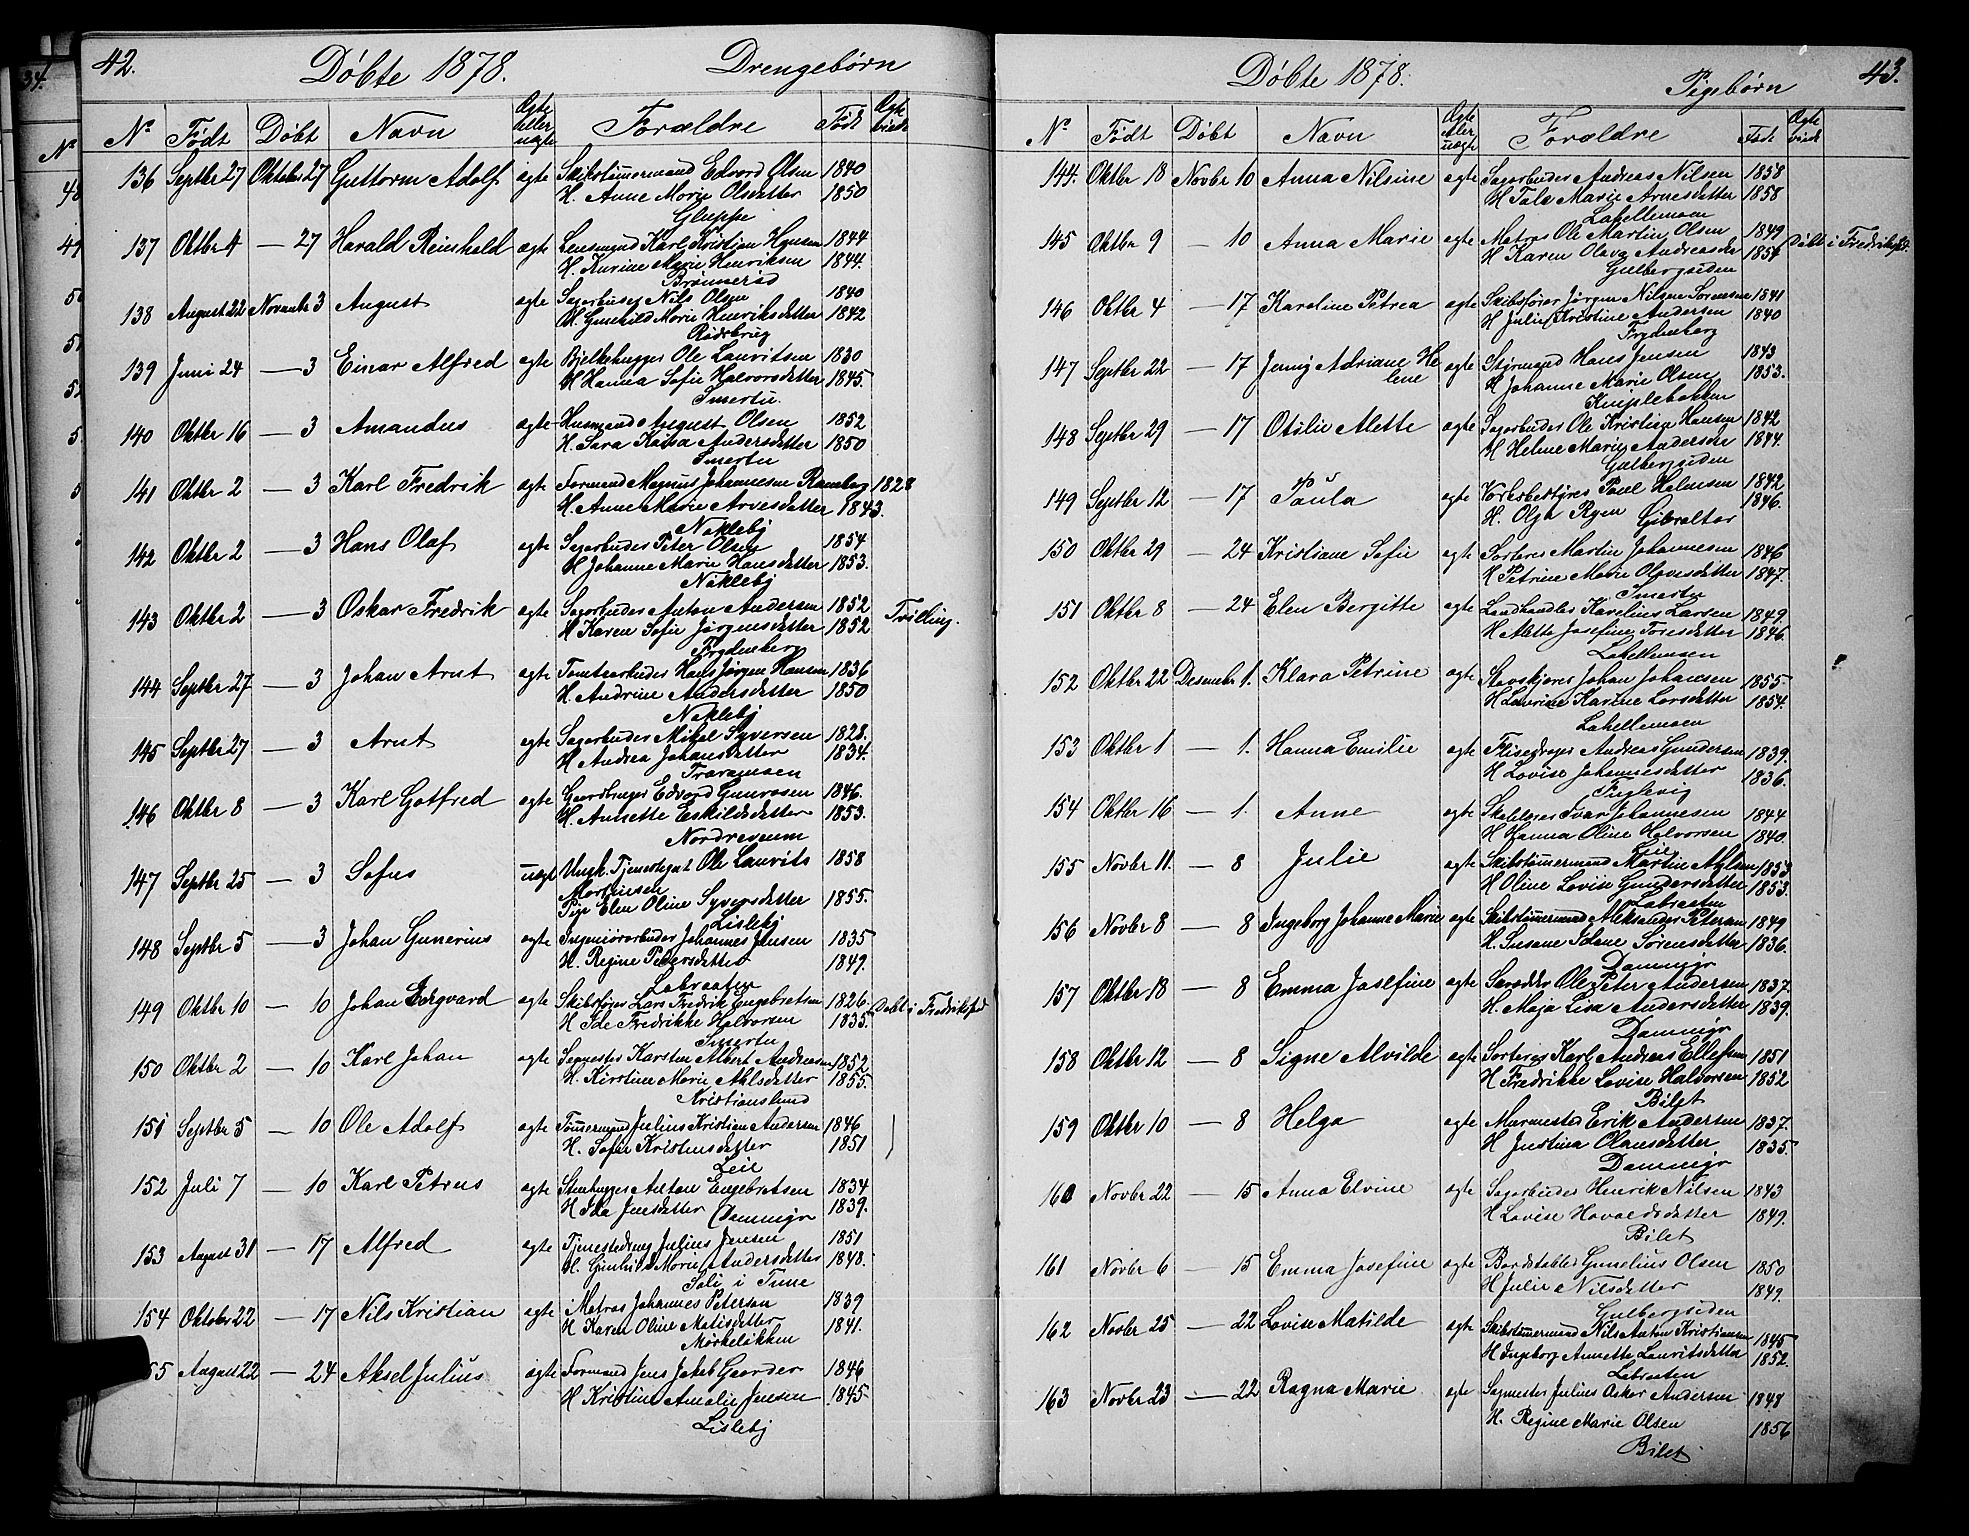 42.
Döbte 1878.
Drengebørn
Nº Födt Döbt Navn Ægte eller uægte Forældre Födt
136 Septbr 27 Oktober 27 Guttorm Adolf ægte Skibstömermand Edvard Olsen 1840
H. Anne Marie Olsdatter 1850
Gluppe
137 Oktbr 4 — 27 Harald Reinhold ægte Lensmand Karl Kristian Hansen 1844
H. Karine Marie Henriksen 1844.
138 August 22 Novembr 3 August ægte Nils Olsen 1840
H. Gunhild Marie Henriksdatter 1842
139 Juni 24 — 3 Einar Alfred ægte Bjelkehugger Ole Lauritsen 1830
H Hanna Sofie Halvorsdatter 1845.
Smertu.
140 Oktbr 16 — 3 Amandus ægte Husmand August Olsen 1852
H. Sara Kaisa Andersdatter 1850
Smertu
141 Oktbr 2 — 3 Karl Fredrik ægte Formand Magnus Johannesen Ramberg 1828
H. Anne Marie Arvesdatter 1843.
Nøkleby
142 Oktbr 2 — 3 Hans Olaf ægte Sagarbeider Peter Olsen 1854
H Johanne Marie Hansdatter 1853.
Nøkleby
143 Oktbr 2 — 3 Oskar Fredrik ægte Sagarbeider Anton Andersen 1852 Tvilling.
H Karen Sofie Jörgensdatter 1852
Frydenberg
144 Septbr 27 — 3 Johan Arnt ægte Tomtearbeider Hans Jörgen Hansen 1836
H. Andrine Andersdatter 1850
Nøkleby
145 Septbr 27 — 3 Arnt ægte Sagarbeider Mikal Syversen 1828.
H Andrea Johansdatter 1834.
Traramoen
146 Oktbr 8 — 3 Karl Gotfred ægte Gaardbruger Edvard Gunersen 1846.
H. Annette Eskildsdatter 1853.
147 Septbr 25 — 3 Sofus uægt Ungk. Tjenestegut Ole Laurits 1858
Mortensen
Pige Elen Oline Syversdatter 1855.
Lisleby
148 Septbr 5 — 3 Johan Gunerius ægte Ingeniörarbeider Johannes Jensen 1835
H. Regine Pedersdatter 1849.
Labraaten
149 Oktbr 10 — 10 Johan Edvard ægte Skibsförer Lars Fredrik Engebretsen 1826. Döbt i Fredrikstad
H Ide Fredrikke Halvorsen 1835.
Smertu
150 Oktbr 2 — 10 Karl Johan ægte Sagmester Karsten Albert Andreasen 1852
H. Kirstine Marie Ahlsdatter 1855.
Kristianslund
151 Septbr 5 — 10 Ole Adolf ægte Tömermand Julius Kristian Andersen 1846
H. Sofie Kristensdatter 1851
Leie
152 Juli 7 — 10 Karl Petrus ægte Stenhugger Anton Engebretsen 1834
H Ida Jensdatter Dammyr 1839.
153 August 31 — 17 Alfred ægte Tjenestedreng Julius Jensen 1851
H. Gunhild Marie Andersdatter 1848.
Soli i Tune
154 Oktober 22 — 17 Nils Kristian ægte Matros Johannes Petersen 1839
H Karen Oline Matisdatter 1841.
Mörkeløkken
55 August 22 — 24 Aksel Julius ægte Formand Jens Jakob Gaarder 1846
H Kristine Amalie Jensen 1845
Lisleby
Döbte 1878.
Pigebørn
43.
Nº Födt Döbt Navn Ægte eller uægte Forældre Födt
144. Oktbr 18 Novbr 10 Anna Nilsine ægte Sagarbeider Andreas Nilsen 1858
H Tale Marie Arnesdatter 1858
Lahellemoen
145 Oktbr 9 — 10 Anna Marie ægte Matros Ole Martin Olsen 1849 Döbt i Fredrikstad.
H Karen Olava Andreasdtr 1854
Gulbergsiden
146 Oktbr 4 — 17 Karoline Petrea ægte Skibsförer Jörgen Nilsen Sörensen 1841
H Julie Kristine Andersen 1840
Frydenberg
147 Septbr 22 — 17 Jenny Adriane Helene ægte Styrmand Hans Jensen 1843
H Johanne Marie Olsen 1853.
Kniplebakken
148 Septbr 29 — 17 Otilie Alette ægte Sagarbeider Ole Kristian Hansen 1842
H Helene Marie Andersdtr 1844.
Gulbergsiden
149 Septbr 12 — 17 Paula ægte Værksbestyrer Paul Helmsen 1842
H. Olga Ryen 1846.
Gibraltar
150 Oktbr 29 — 24 Kristiane Sofie ægte Sorterer Martin Johannesen 1846
H Petrine Marie Olavesdatter 1847.
Smertu
151 Oktbr 8 — 24 Elen Bergitte ægte Landhandler Karelius Larsen 1849.
H Alette Josefine Toresdatter 1846.
Lahellemoen
152 Oktbr 22 Desembr 1. Klara Petrine ægte Stavskjærer Johan Johansen 1855
H Laurine Karine Larsdatter 1854.
Lahellemoen
153 Oktbr 1 — 1. Hanna Emilie ægte Flisedrager Andreas Gundersen 1839.
H Lovise Johannesdatter 1836.
Fuglevig
154 Oktbr 16 — 1. Anne ægte Ivar Johannesen 1844
H Hanna Oline Halvorsen 1840.
Leie
155 Novbr 11. — 8 Julie ægte Skibstömermand Martin Ahlsen 1853
H Oline Lovise Gundersdatter 1853.
Labraaten
156 Novbr 8 — 8 Ingeborg Johanne Marie ægte Skibstömermand Aleksander Petersen 1849
H. Susane Idane Sörensdatter 1836.
Dammyr
157 Oktbr 18 — 8 Emma Josefine ægte Ole Peter Andersen 1837.
H. Maja Lisa Andersdatter 1839.
Dammyr
158 Oktbr 12 — 8 Signe Alvilde ægte Sorterer Karl Andreas Ellefsen 1851
H Fredrikke Lovise Halvorsen 1852
Bilet
159 Oktbr 10 — 8 Helga ægte Murmester Erik Andersen 1837.
H Justina Olausdatter 1835.
Dammyr
160 Novbr 22 — 15 Anna Elvine ægte Sagarbeider Henrik Nilsen 1843
H Lovise Havaldsdatter 1849.
Bilet
161 Novbr 6 — 15 Emma Josefine ægte Bordstabler Gunelius Olsen 1850
H Julie Nilsdatter 1849.
Gulbergsiden
162 Novbr 25 — 22 Lovise Matilde ægte Skibstömermand Nils Anton Kristiansen 1845
H Ingeborg Annette Lauritsdatter 1852.
Labraaten
163 Novbr 23 — 22 Ragna Marie ægte Sagmester Julius Oskar Andersen 1848
H. Regine Marie Olsen 1856
Bilet